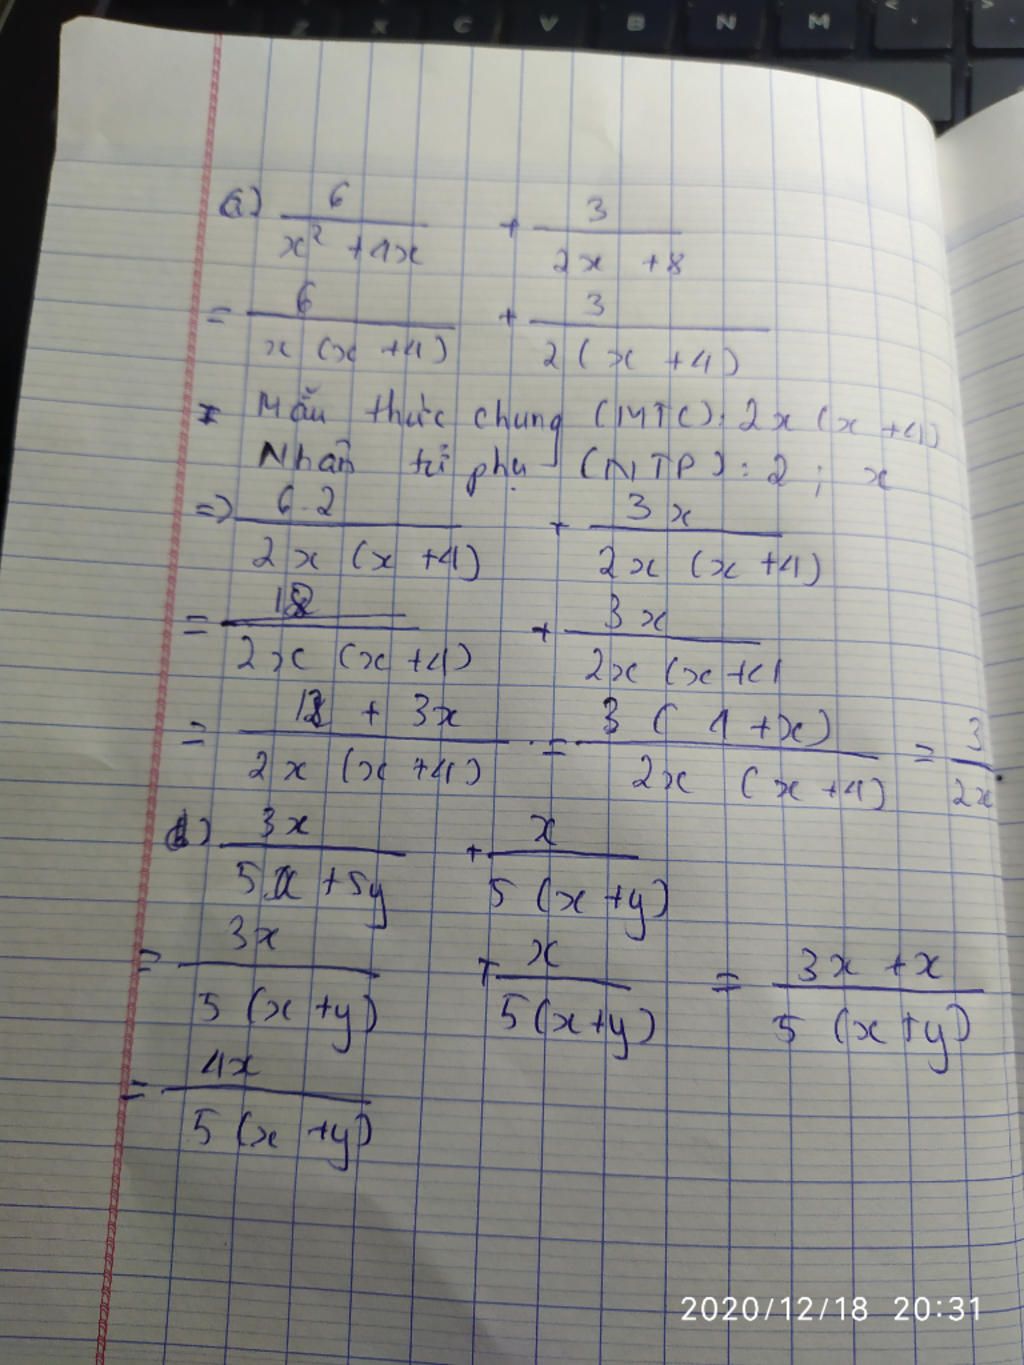 Z X C V B N M
a) 6/(x² + 4x) + 3/(2x + 8)
= 6/(x (x + 4)) + 3/(2 (x + 4))
Mẫu thức chung (MTC): 2x (x + 4)
Nhân tử phụ (NTP): 2 ; x
=> 6.2/(2x (x + 4)) + 3x/(2x (x + 4))
= 12/(2x (x + 4)) + 3x/(2x (x + 4
= (12 + 3x)/(2x (x + 4)) = 3 (4 + x)/(2x (x + 4)) = 3/2x
b) 3x/(5x + 5y) + x/(5 (x + y))
= 3x/(5 (x + y)) + x/(5 (x + y)) = (3x + x)/(5 (x + y))
= 4x/(5 (x + y))
2020/12/18 20:31